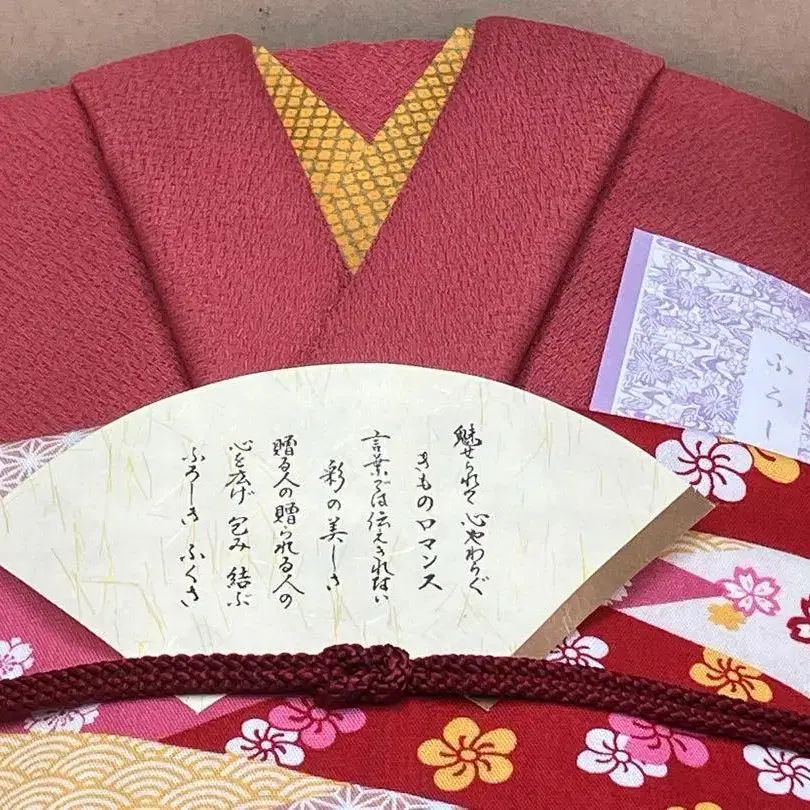 魅せられて 心やわらぐ
きものロマンス
言葉では伝えきれない
彩の美しさ
贈る人の贈られる人の
心を広げ 包み 結ぶ
ふろしき ふくさ
ふろし